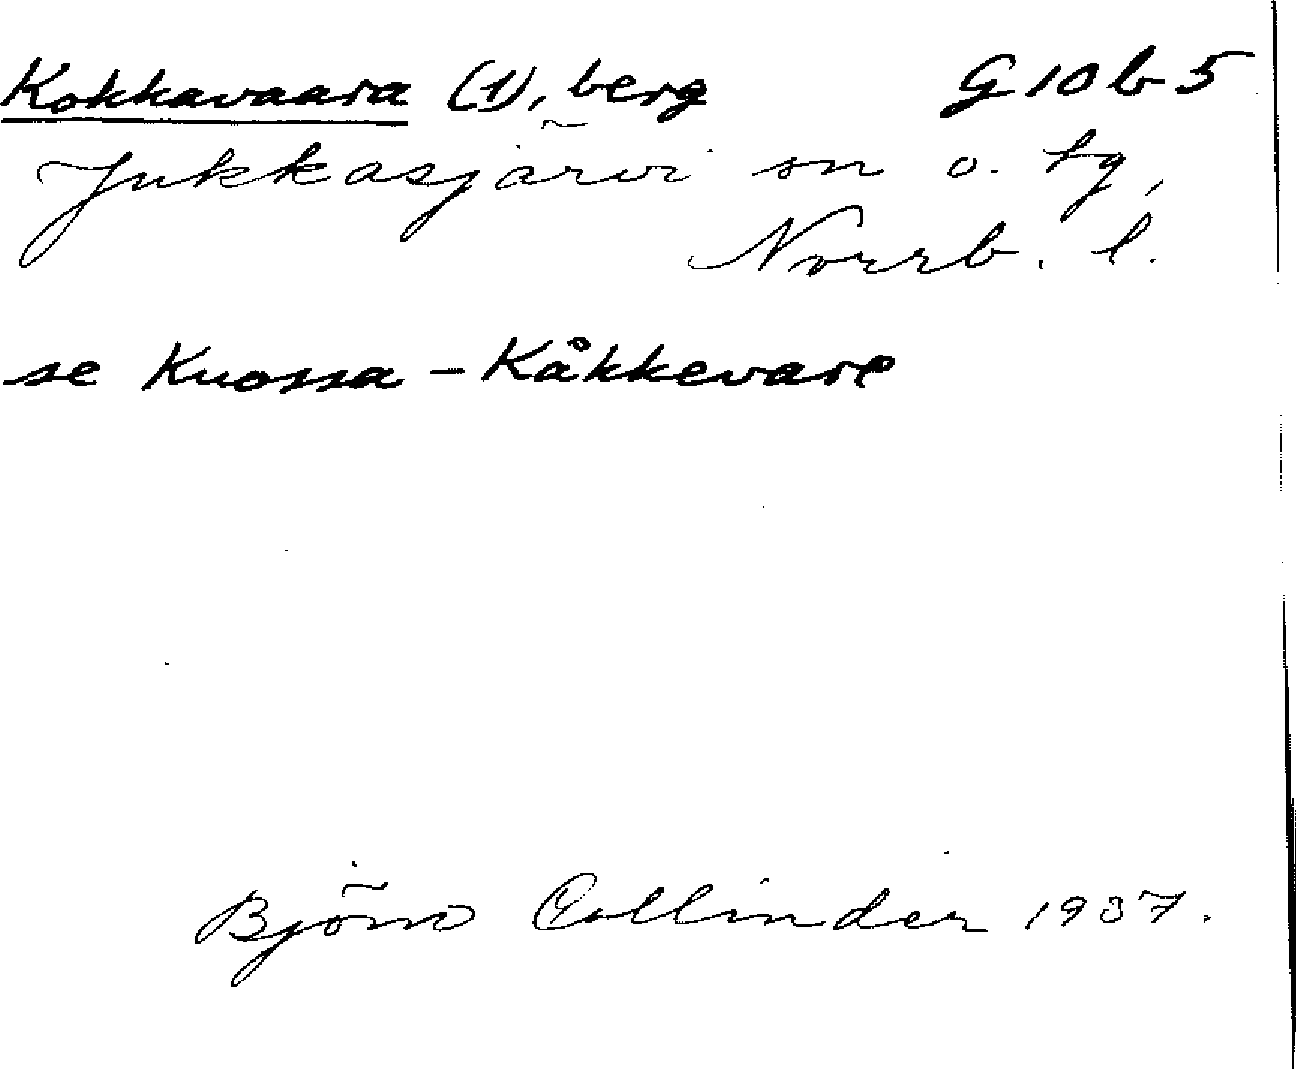 Kokkavaara (1), berg G 10 b 5
Jukkasjärvi sn o. tg,
Norrb. l.
se Kuossa-Kåkkevare
Björn Collinder 1937.